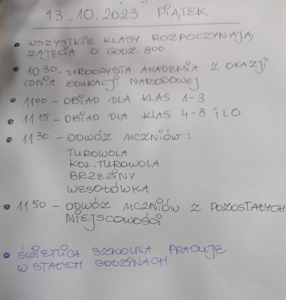 13.10.2023 PIĄTEK
• WSZYSTKIE KLASY ROZPOCZYNAJĄ
ZAJĘCIA O GODZ. 800
• 1030 - UROCZYSTA AKADEMIA Z OKAZJI
DNIA EDUKACJI NARODOWEJ
• 1100 - OBIAD DLA KLAS 1-3
• 1115 - OBIAD DLA KLAS 4-8 i LO
• 1130 - ODWÓZ UCZNIÓW:
TUROWOLA
KOL. TUROWOLA
BRZEZINY
WESOŁÓWKA
• 1150 - ODWÓZ UCZNIÓW Z POZOSTAŁYCH
MIEJSCOWOŚCI
• ŚWIETLICA SZKOLNA PRACUJE
W STAŁYCH GODZINACH